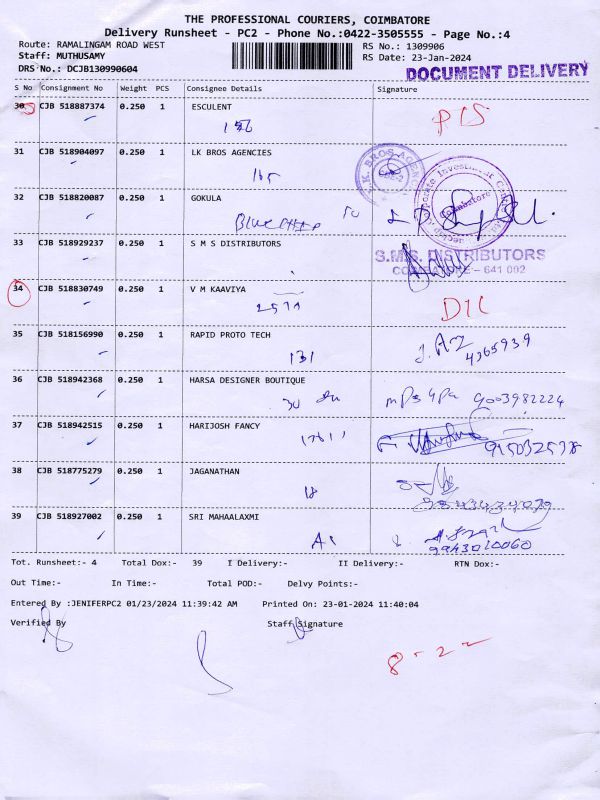 THE PROFESSIONAL COURIERS, COIMBATORE
Delivery Runsheet - PC2 - Phone No.:0422-3505555 - Page No.:4
Route: RAMALINGAM ROAD WEST
RS No.: 1309906
Staff: MUTHUSAMY
RS Date: 23-Jan-2024
DRS No.: DCJB130990604
DOCUMENT DELIVERY
S No Consignment No Weight PCS Consignee Details Signature
30 CJB 518887374 0.250 1 ESCULENT
31 CJB 518904097 0.250 1 LK BROS AGENCIES
32 CJB 518820087 0.250 1 GOKULA
33 CJB 518929237 0.250 1 S M S DISTRIBUTORS
S.M.S. DISTRIBUTORS
COIMBATORE - 641 002
34 CJB 518830749 0.250 1 V M KAAVIYA
35 CJB 518156990 0.250 1 RAPID PROTO TECH
131
4365939
36 CJB 518942368 0.250 1 HARSA DESIGNER BOUTIQUE
9003982224
37 CJB 518942515 0.250 1 HARIJOSH FANCY
38 CJB 518775279 0.250 1 JAGANATHAN
18
39 CJB 518927002 0.250 1 SRI MAHAALAXMI
9943010060
Tot. Runsheet:- 4 Total Dox:- 39 I Delivery:- II Delivery:- RTN Dox:-
Out Time:- In Time:- Total POD:- Delvy Points:-
Entered By :JENIFERPC2 01/23/2024 11:39:42 AM Printed On: 23-01-2024 11:40:04
Verified By Staff Signature
8-22